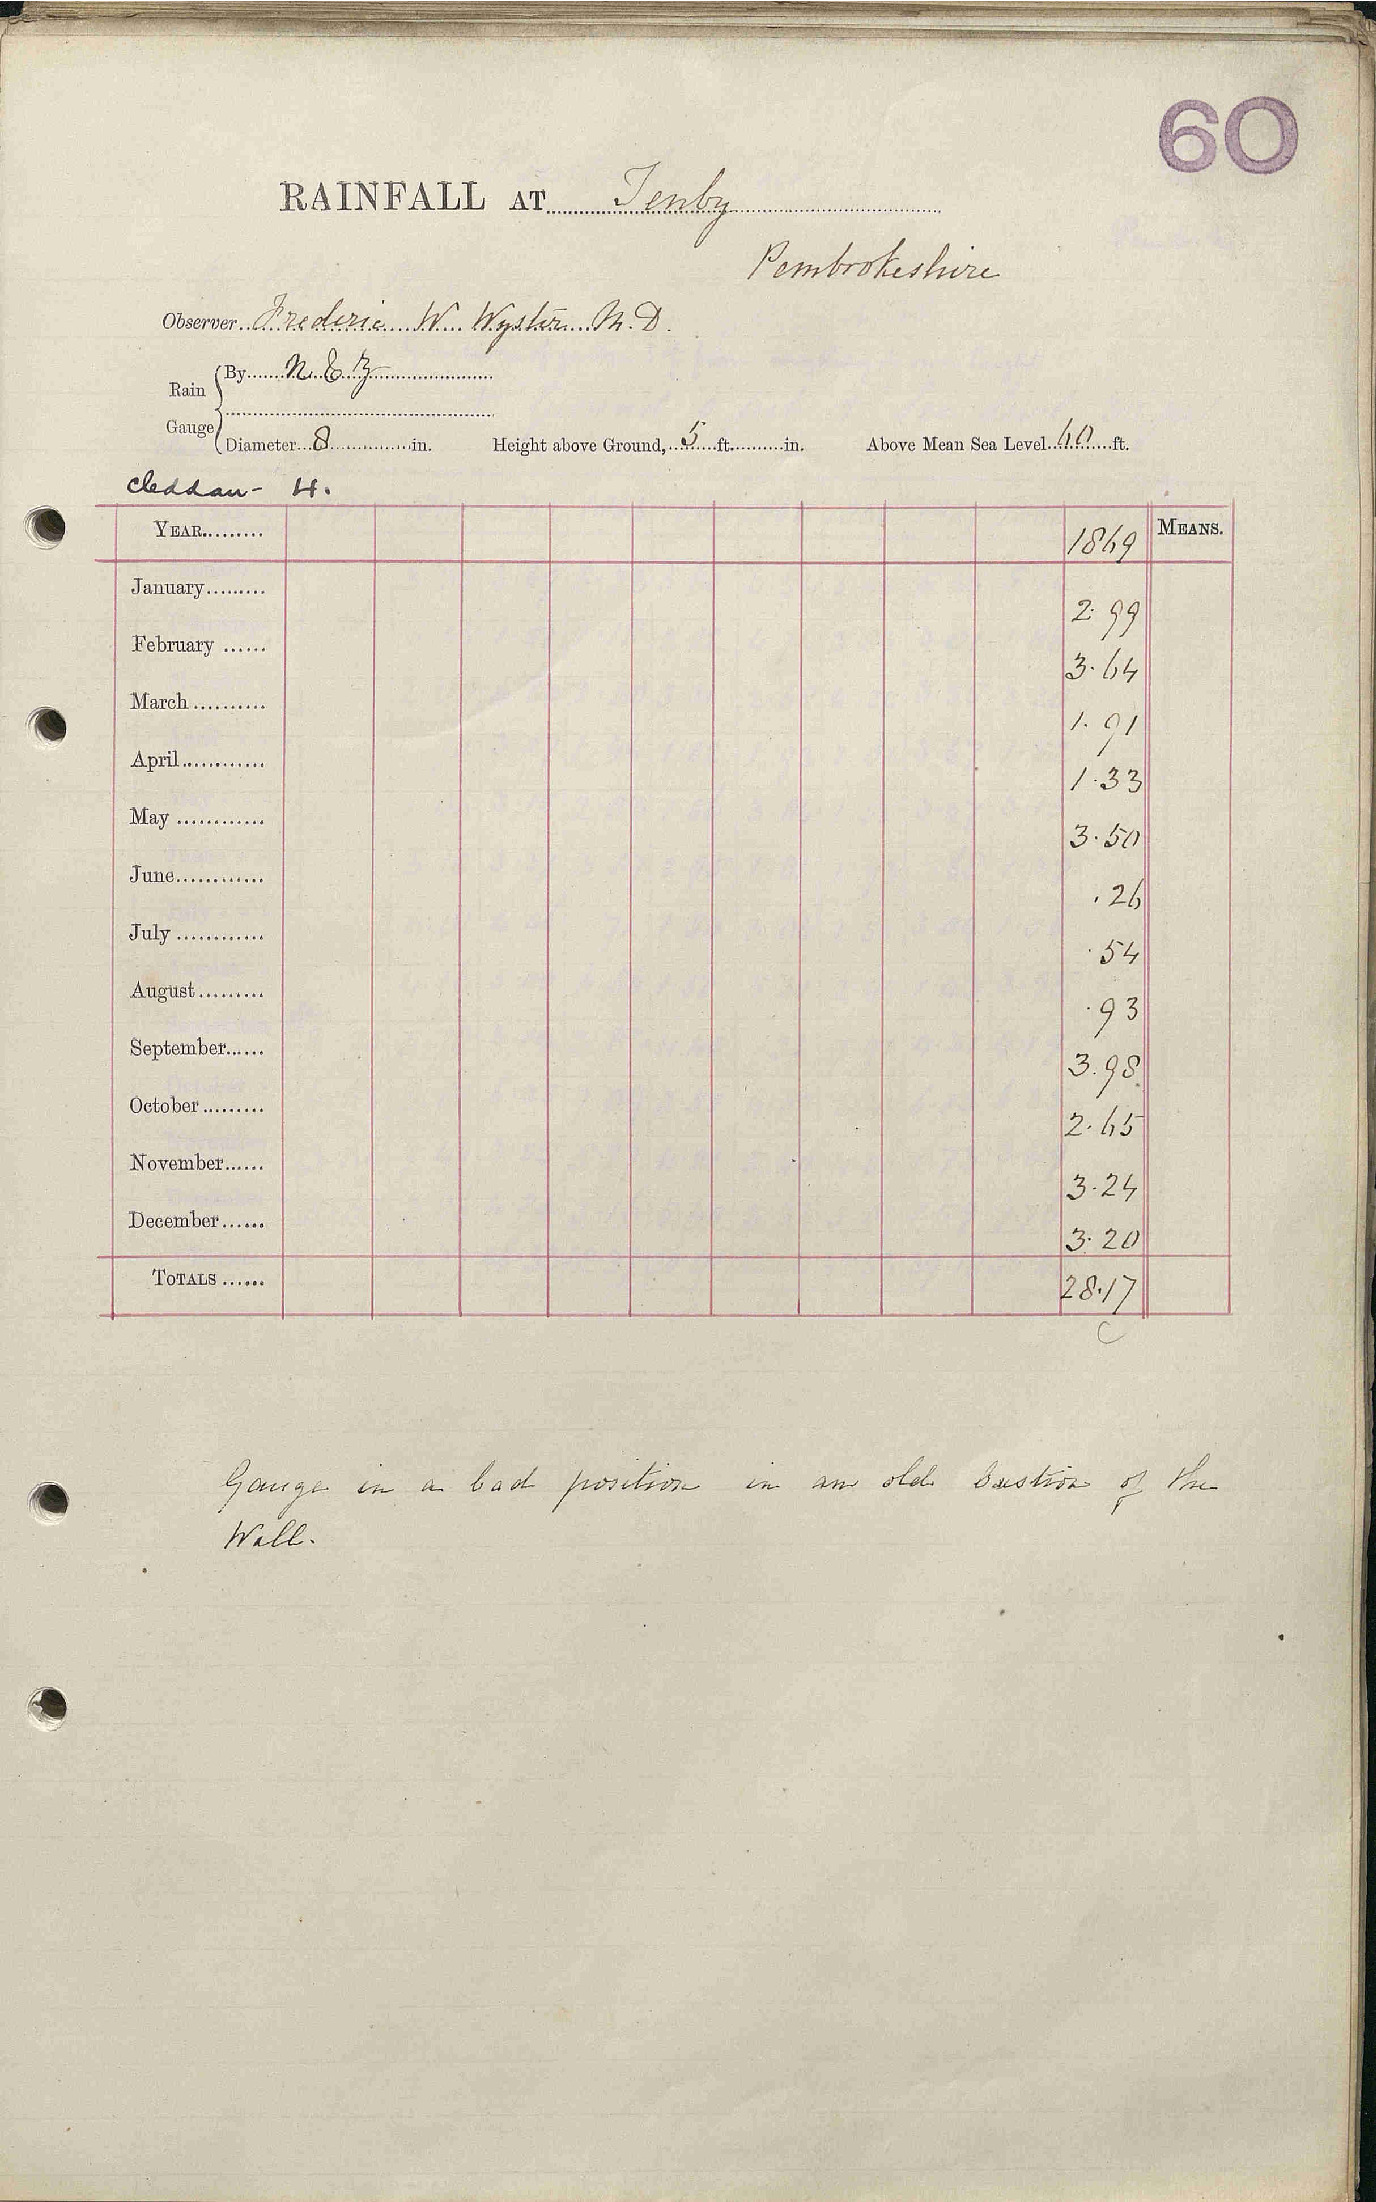 60
RAINFALL AT Tenby
Pembrokeshire
Observer Frederic W. M.D.
Rain Gauge
By N & Z
Diameter 8 in. Height above Ground, 5 ft. in. Above Mean Sea Level 60 ft.
Cleddau - H.
YEAR 1869 MEANS.
January 2.99
February 3.64
March 1.91
April 1.33
May 3.50
June .26
July .54
August .93
September 3.98
October 2.65
November 3.24
December 3.20
TOTALS 28.17
C
Gauge in a bad position in an old bastion of the
Wall.